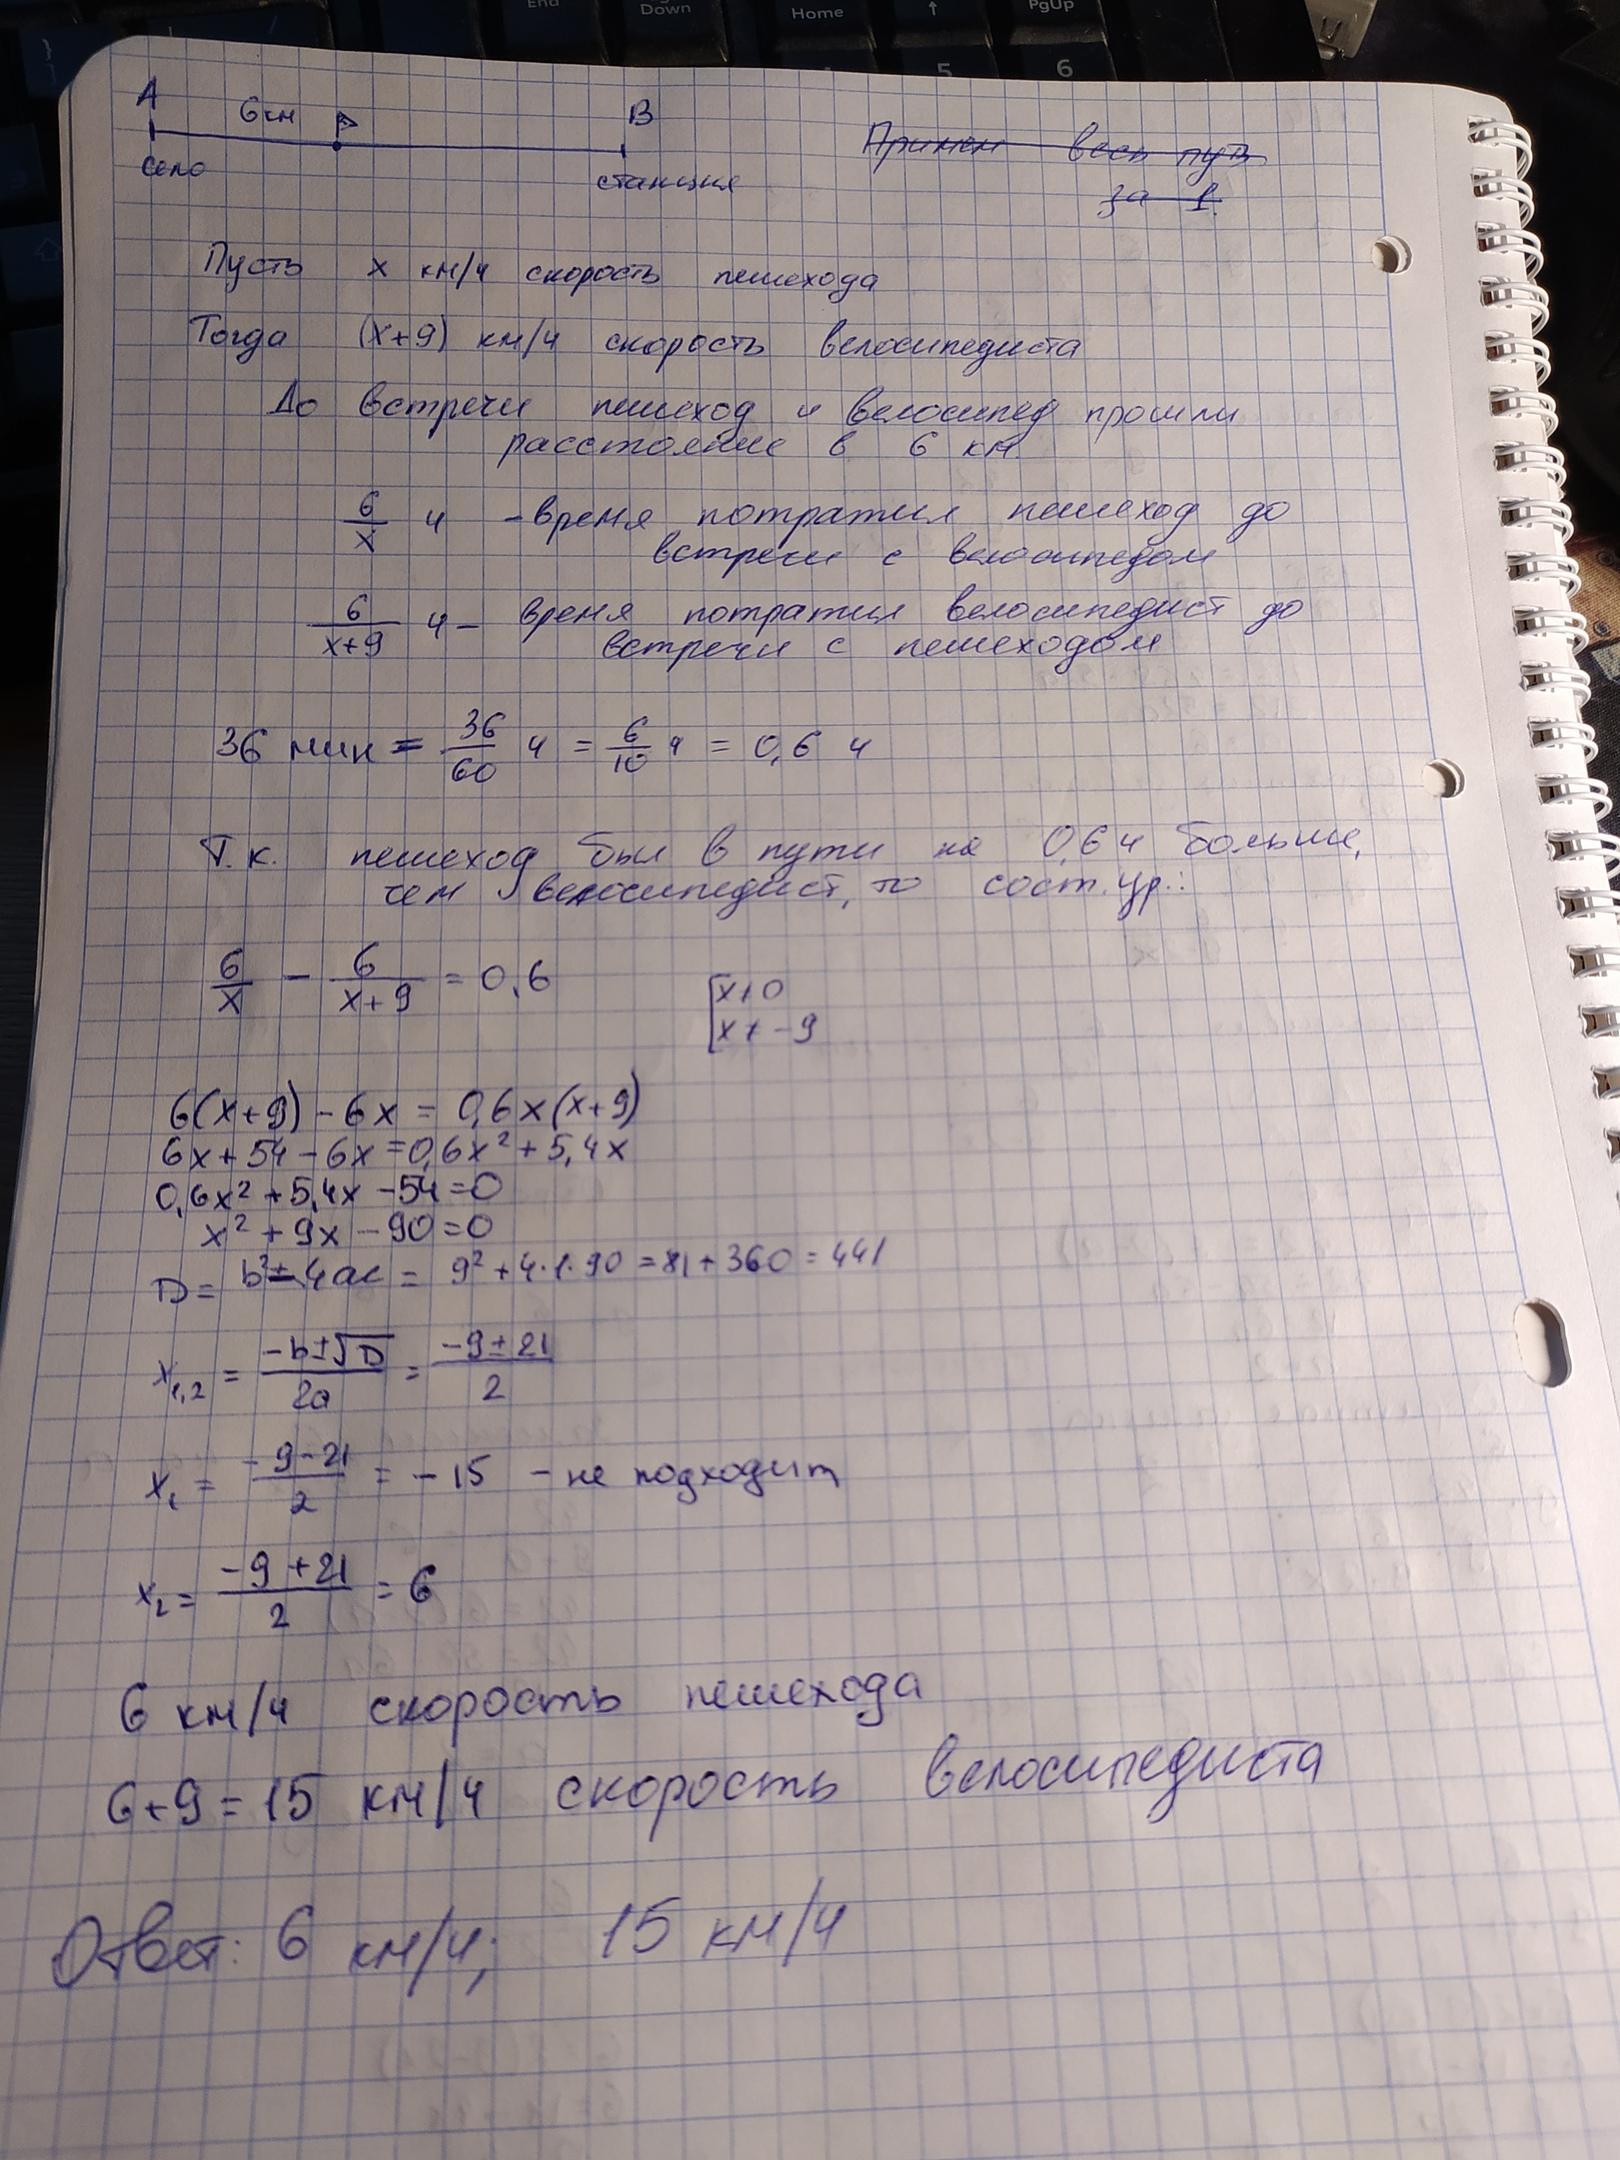 End
Down
Home
↑
PgUp
5
6
A
6 км
B
село
станция
Примем весь путь
за 1.
Пусть x км/ч скорость пешехода
Тогда (x+9) км/ч скорость велосипедиста
До встречи пешеход и велосипед прошли
расстояние в 6 км.
6/x ч - время потратил пешеход до
встречи с велосипедом
6/(x+9) ч - время потратил велосипедист до
встречи с пешеходом
36 мин = 36/60 ч = 6/10 ч = 0,6 ч
Т.к. пешеход был в пути на 0,6 ч больше,
чем велосипедист, то сост. ур.:
6/x - 6/(x+9) = 0,6
[x≠0
x≠-9
6(x+9) - 6x = 0,6x(x+9)
6x+54-6x=0,6x²+5,4x
0,6x²+5,4x-54=0
x²+9x-90=0
D= b²-4ac = 9²+4·1·90 = 81+360=441
x₁,₂ = (-b±√D)/2a = (-9±21)/2
x₁ = (-9-21)/2 = -15 - не подходит
x₂ = (-9+21)/2 = 6
6 км/ч скорость пешехода
6+9=15 км/ч скорость велосипедиста
Ответ: 6 км/ч; 15 км/ч